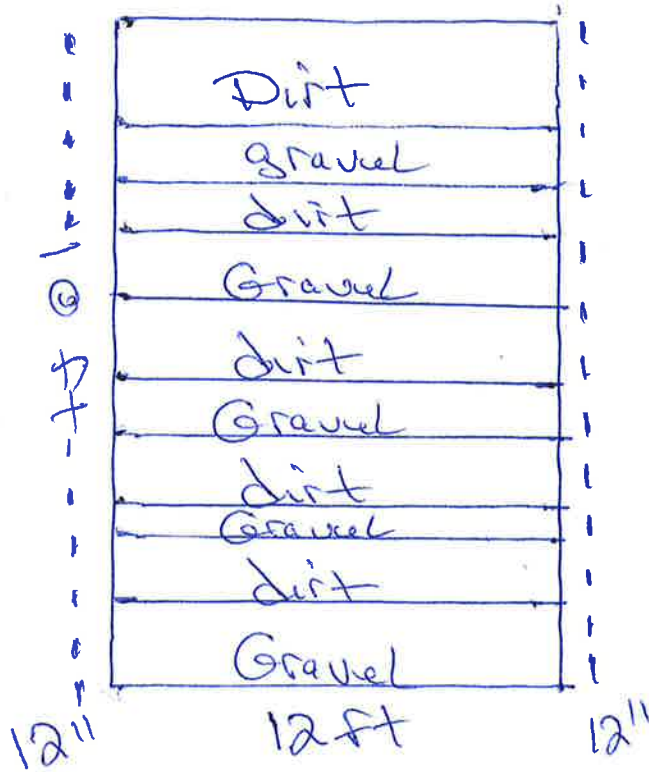 Dirt
gravel
dirt
Gravel
dirt
Gravel
dirt
Gravel
dirt
Gravel
12" 12 ft 12"